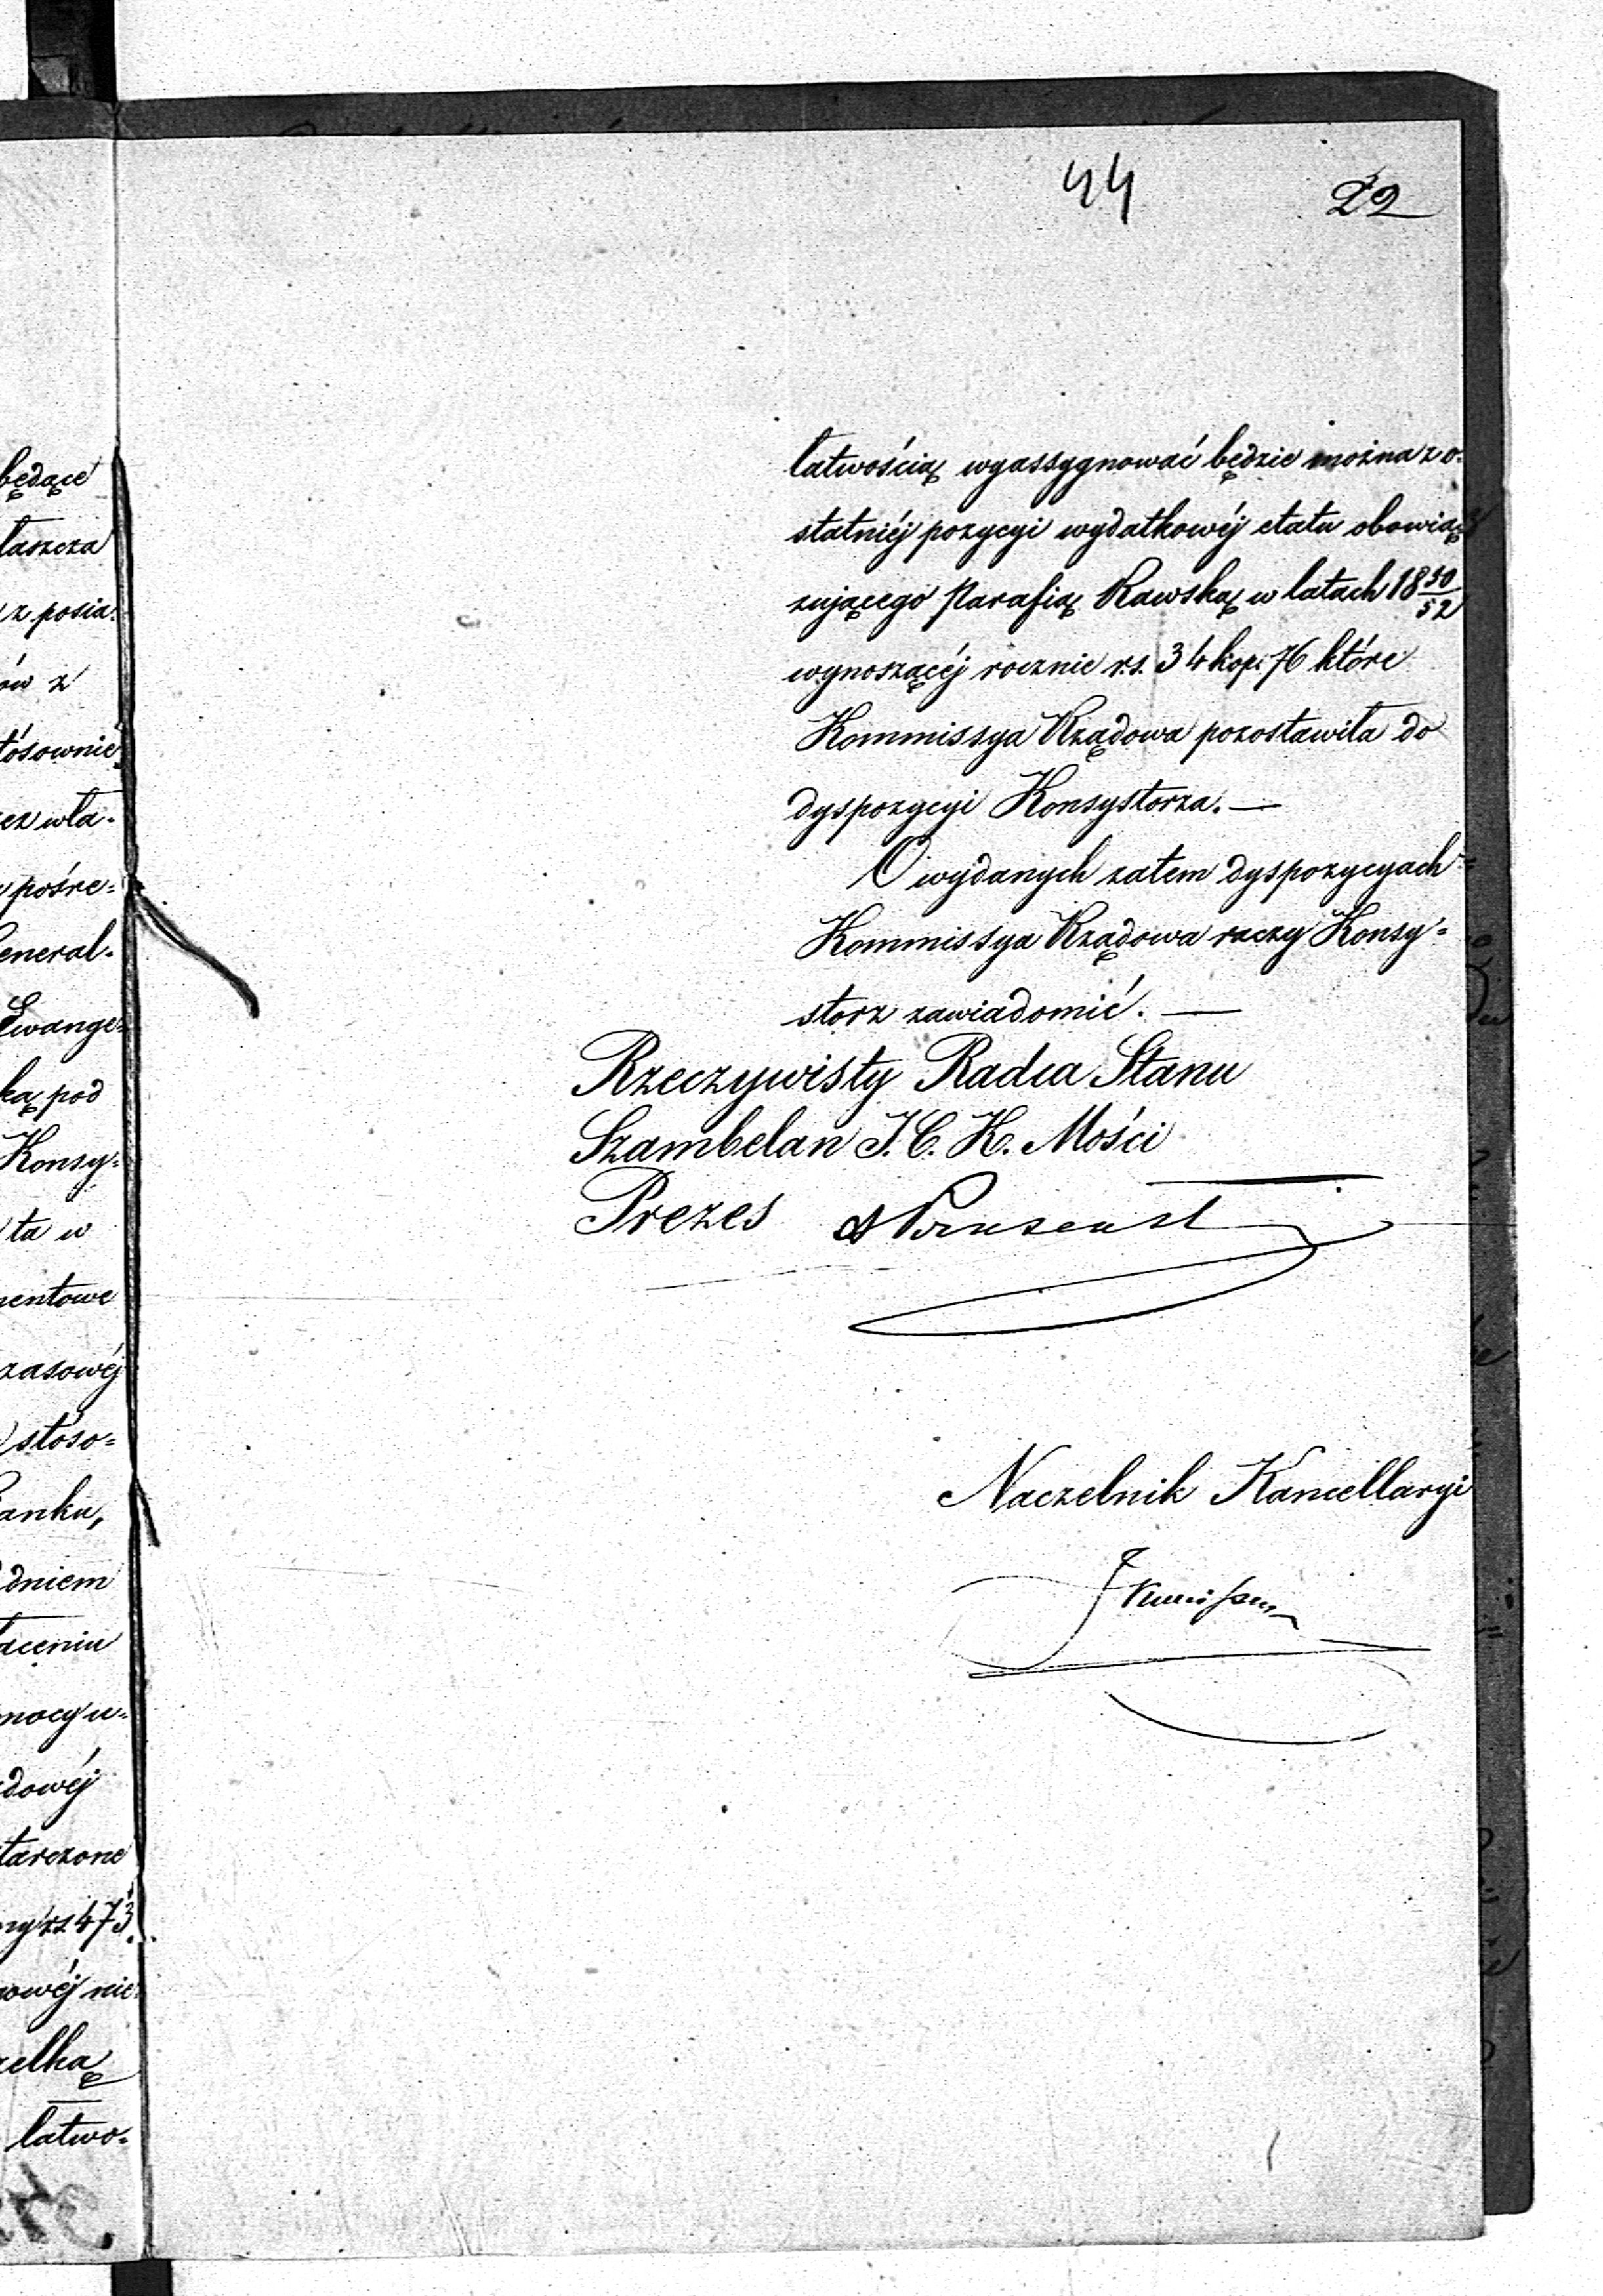 44 22
będące
łaszcza
z posia-
ów z
tósownie
ez wła-
pośre=
General-
Ewange-
ką pod
Konsy-
ta w
mentowe
zasowéj
stóso=
anku,
dniem
aceniu
mocy u-
dowéj
tarczone
ny rs 473
wéj nie
zelką
łatwo-
łatwością wyassygnować będzie można z o-
statniéj pozycyi wydatkowéj etatu obowią
zującego Parafią Rawską w latach 18 50/52
wynoszącéj rocznie r.s. 34 kop. 76 które
Kommissya Rządowa pozostawiła do
dyspozycyi Konsystorza. —
O wydanych zatem dyspozycyach
Kommissya Rządowa raczy Konsy=
storz zawiadomić. —
Rzeczywisty Radca Stanu
Szambelan J. C. K. Mości
Prezes
Naczelnik Kancellaryi